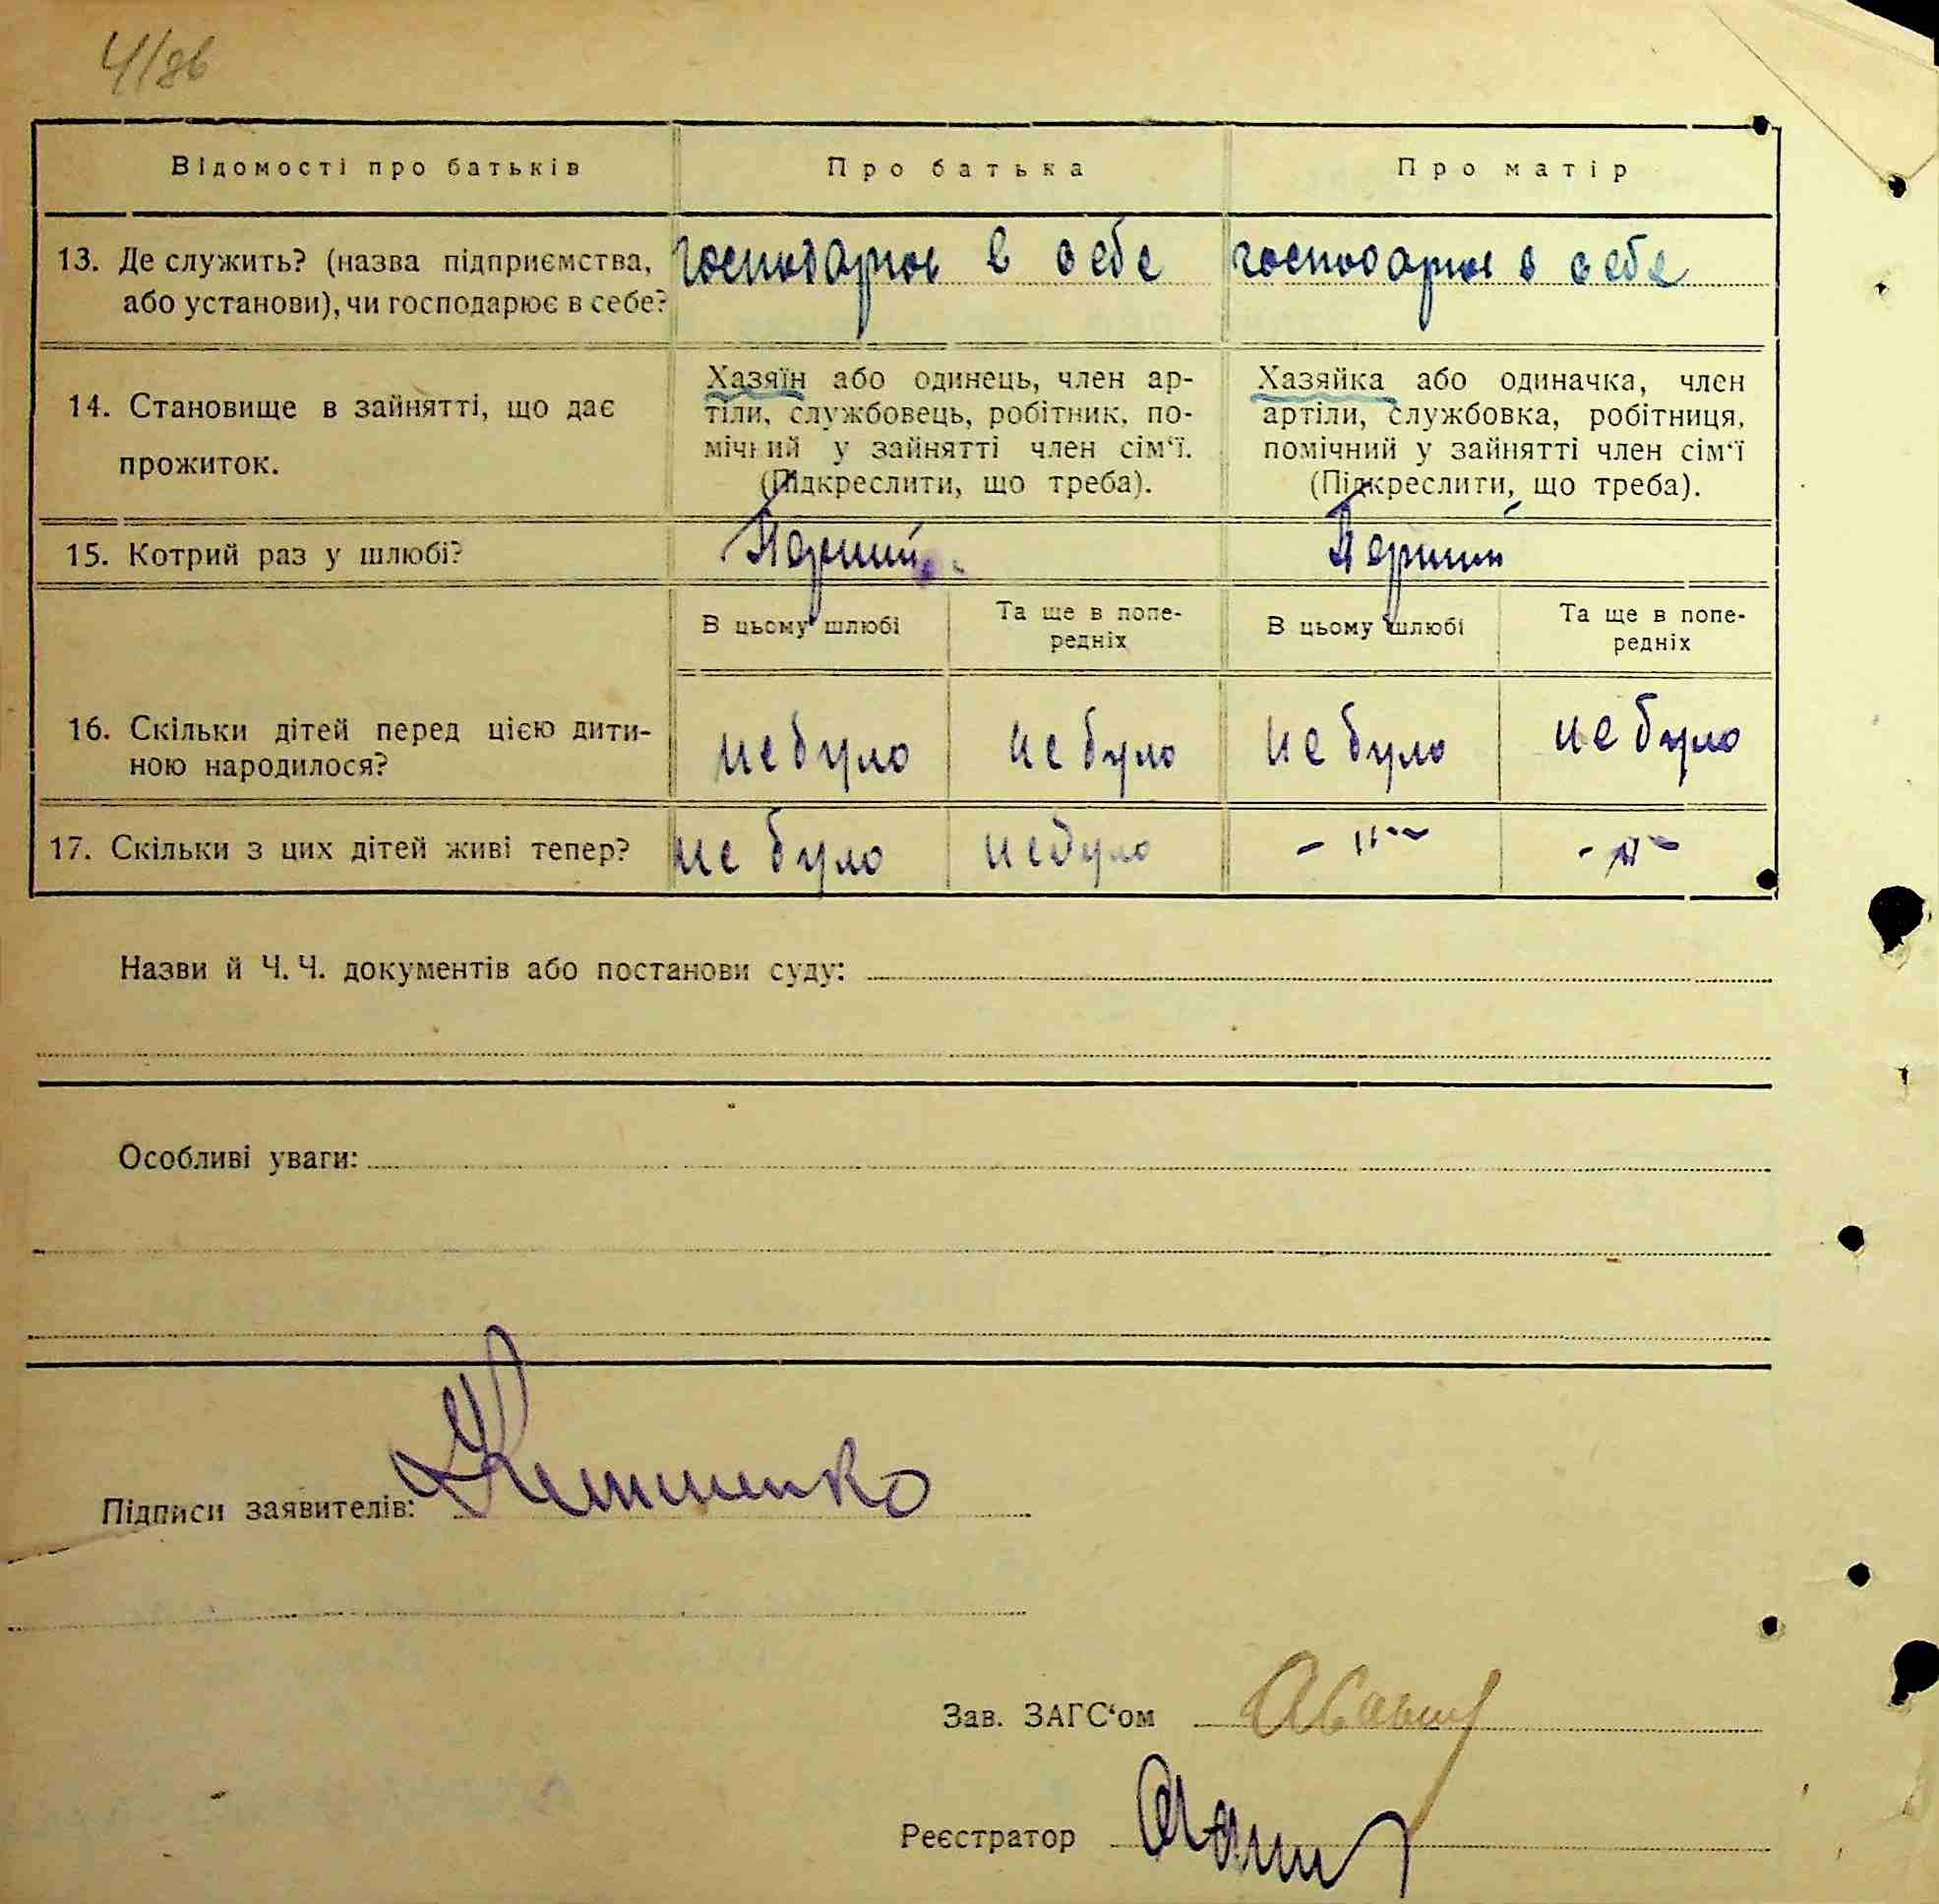 4/86
Відомості про батьків Про батька Про матір
13. Де служить? (назва підприємства, або установи), чи господарює в себе? господарює в себе господарює в себе
14. Становище в зайнятті, що дає прожиток.
Хазяїн або одинець, член ар-
тіли, службовець, робітник, по-
мічний у зайнятті член сім‘ї.
(Підкреслити, що треба).
Хазяйка або одиначка, член
артіли, службовка, робітниця,
помічний у зайнятті член сім‘ї
(Підкреслити, що треба).
15. Котрий раз у шлюбі? Перший Перший
В цьому шлюбі Та ще в попе-редніх В цьому шлюбі Та ще в попе-редніх
16. Скільки дітей перед цією дити-
ною народилося? не було не було не було не було
17. Скільки з цих дітей живі тепер? не було не було - " - - " -
Назви й Ч. Ч. документів або постанови суду:
Особливі уваги:
Підписи заявителів:
Зав. ЗАГС‘ом
Реєстратор